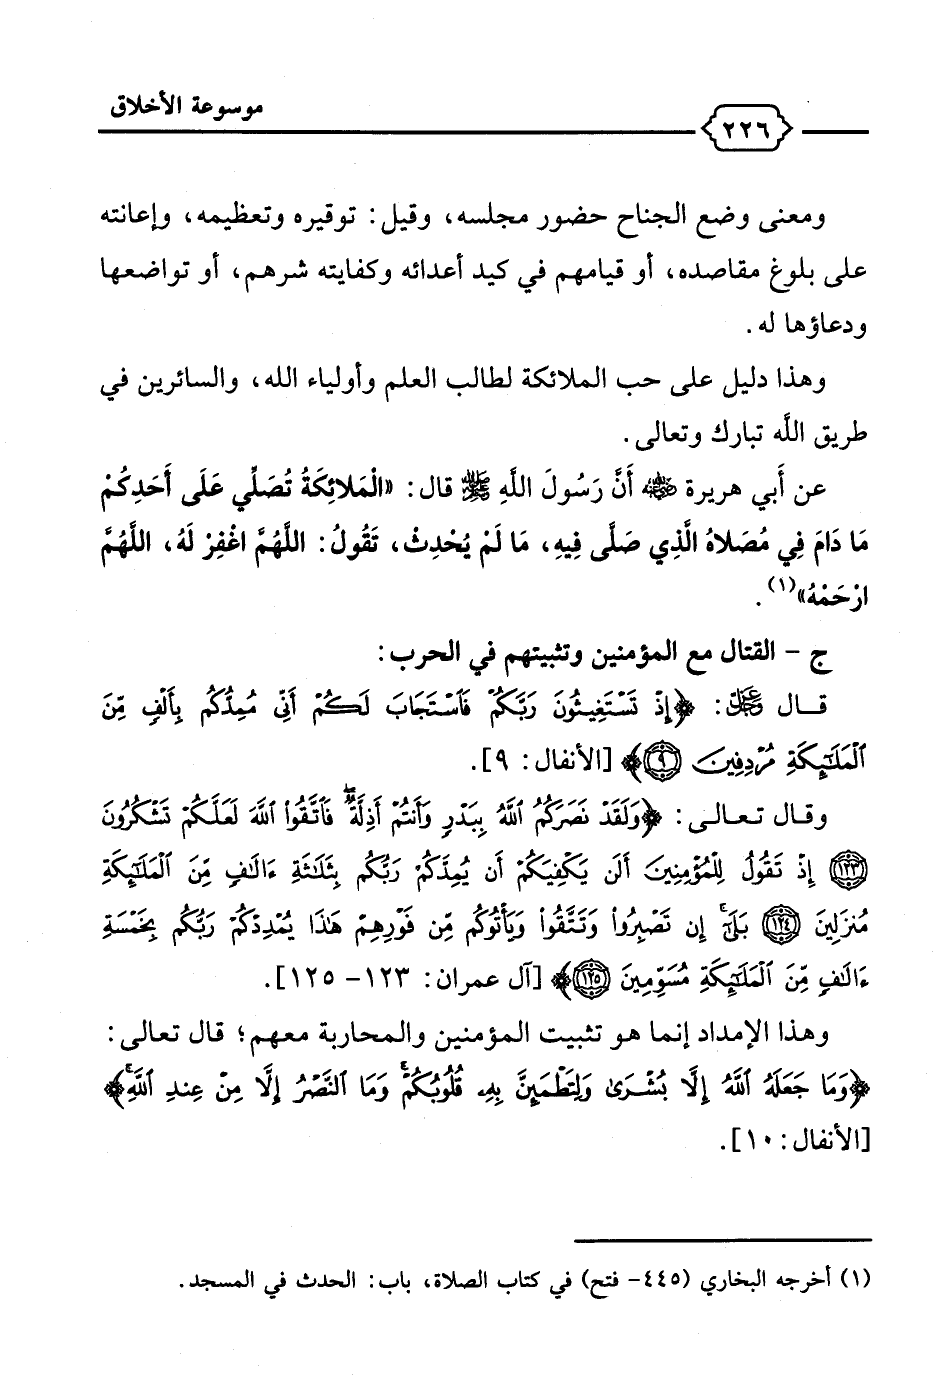 موسوعة الأخلاق
٢٢٦
ومعنى وضع الجناح حضور مجلسه، وقيل: توقيره وتعظيمه، وإعانته
على بلوغ مقاصده، أو قيامهم في كيد أعدائه وكفايته شرهم، أو تواضعها
ودعاؤها له.
وهذا دليل على حب الملائكة لطالب العلم وأولياء الله، والسائرين في
طريق اللَّه تبارك وتعالى.
عن أَبي هريرة رضي الله عنه أَنَّ رَسُولَ اللَّهِ ﷺ قال: «الْمَلائِكَةُ تُصَلِّي عَلَى أَحَدِكُمْ
مَا دَامَ فِي مُصَلاهُ الَّذِي صَلَّى فِيهِ، مَا لَمْ يُحْدِثْ، تَقُولُ: اللَّهُمَّ اغْفِرْ لَهُ، اللَّهُمَّ
ارْحَمْهُ»(١).
ج - القتال مع المؤمنين وتثبيتهم في الحرب:
قال عز وجل: ﴿إِذْ تَسْتَغِيثُونَ رَبَّكُمْ فَٱسْتَجَابَ لَكُمْ أَنِّى مُمِدُّكُم بِأَلْفٍ مِّنَ
ٱلْمَلَٰٓئِكَةِ مُرْدِفِينَ ٩﴾ [الأنفال: ٩].
وقال تعالى: ﴿وَلَقَدْ نَصَرَكُمُ ٱللَّهُ بِبَدْرٍ وَأَنتُمْ أَذِلَّةٌ ۖ فَٱتَّقُوا۟ ٱللَّهَ لَعَلَّكُمْ تَشْكُرُونَ
١٢٣ إِذْ تَقُولُ لِلْمُؤْمِنِينَ أَلَن يَكْفِيَكُمْ أَن يُمِدَّكُمْ رَبُّكُم بِثَلَٰثَةِ ءَالَٰفٍ مِّنَ ٱلْمَلَٰٓئِكَةِ
مُنزَلِينَ ١٢٤ بَلَىٰٓ ۚ إِن تَصْبِرُوا۟ وَتَتَّقُوا۟ وَيَأْتُوكُم مِّن فَوْرِهِمْ هَٰذَا يُمْدِدْكُمْ رَبُّكُم بِخَمْسَةِ
ءَالَٰفٍ مِّنَ ٱلْمَلَٰٓئِكَةِ مُسَوِّمِينَ ١٢٥﴾ [آل عمران: ١٢٣- ١٢٥].
وهذا الإمداد إنما هو تثبيت المؤمنين والمحاربة معهم؛ قال تعالى:
﴿وَمَا جَعَلَهُ ٱللَّهُ إِلَّا بُشْرَىٰ وَلِتَطْمَئِنَّ بِهِۦ قُلُوبُكُمْ ۚ وَمَا ٱلنَّصْرُ إِلَّا مِنْ عِندِ ٱللَّهِ ۚ﴾
[الأنفال: ١٠].
(١) أخرجه البخاري (٤٤٥- فتح) في كتاب الصلاة، باب: الحدث في المسجد.